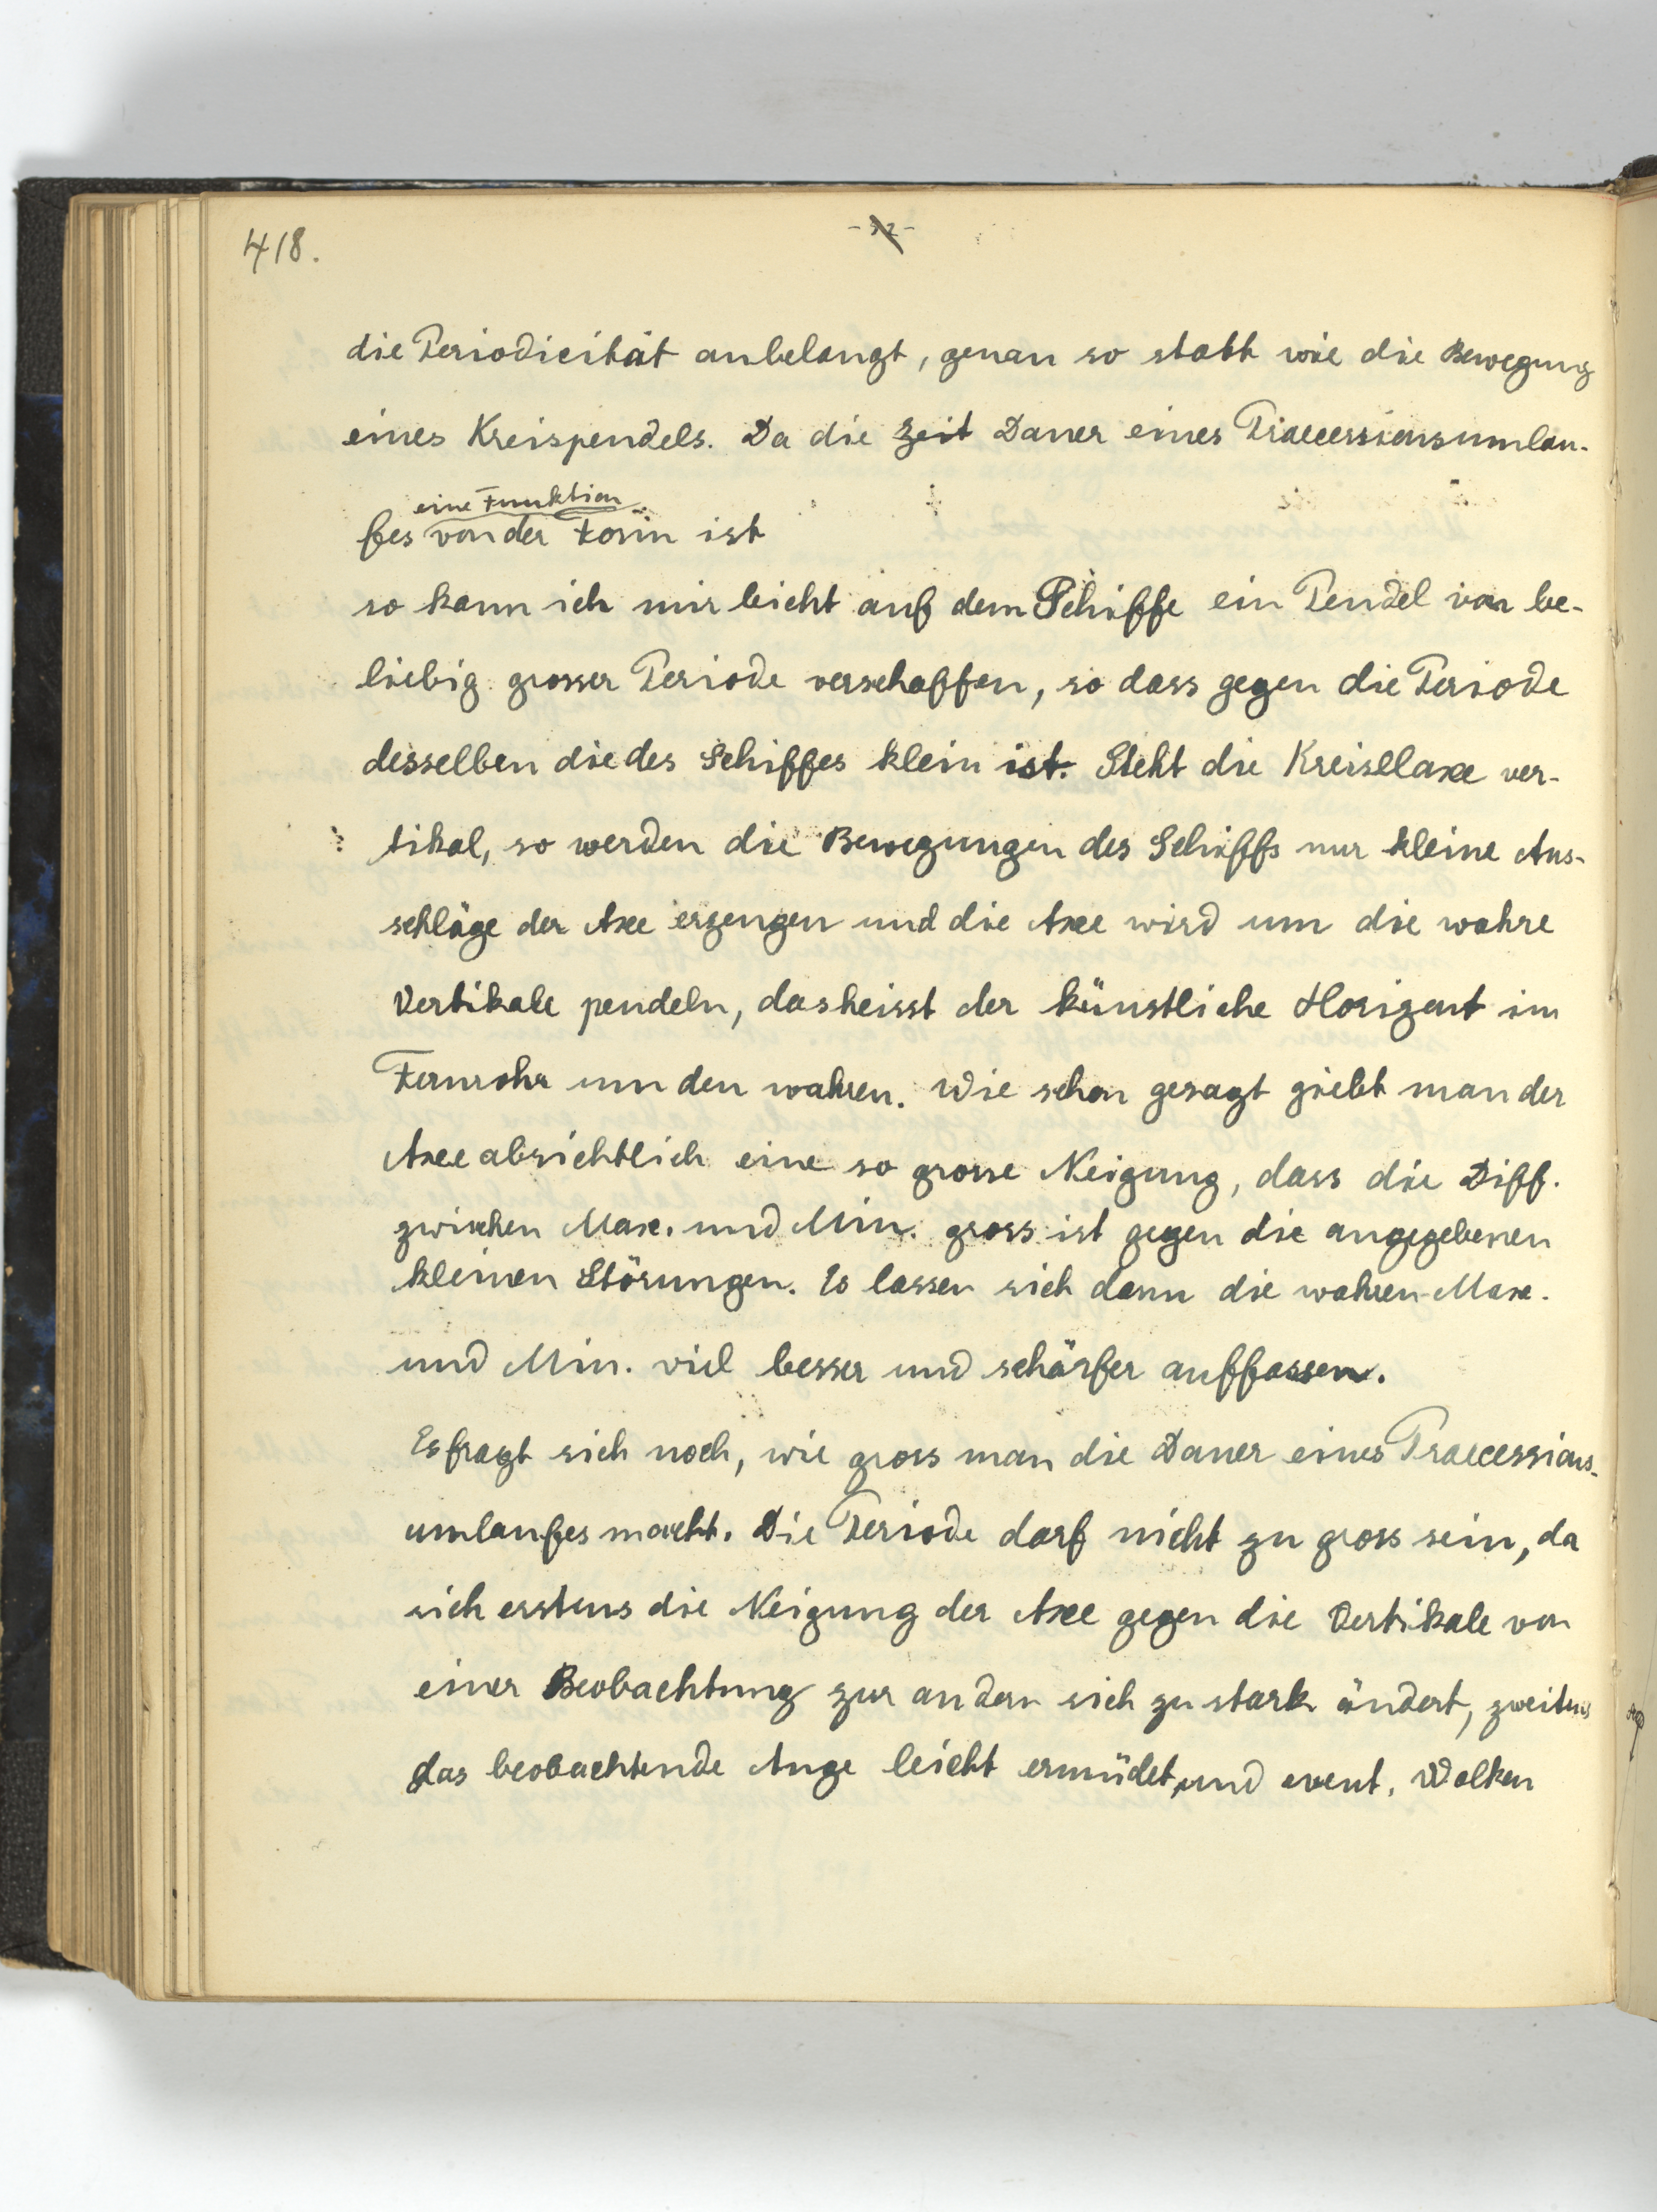 418.
- 32 -
die Periodicität anbelangt, genau so statt wie die Bewegung
eines Kreispendels. Da die Zeit Dauer eines Praecessionsumlau-
eine Funktion
fes von der Form ist
so kann ich mir leicht auf dem Schiffe ein Pendel von be-
liebig grosser Periode verschaffen, so dass gegen die Periode
desselben die des Schiffes klein ist. Steht die Kreisellaxe ver-
tikal, so werden die Bewegungen des Schiffs nur kleine Aus-
schläge der Axe erzeugen und die Axe wird um die wahre
Vertikale pendeln, das heisst der künstliche Horizont im
Fernrohr um den wahren. Wie schon gesagt giebt man der
Axe absichtlich eine so grosse Neigung, dass die Diff.
zwischen Max. und Min. gross ist gegen die angegebenen
kleinen Störungen. Es lassen sich dann die wahren Max.
und Min. viel besser und schärfer auffassen.
Es fragt sich noch, wie gross man die Dauer eines Praecessions-
umlaufes macht. Die Periode darf nicht zu gross sein, da
sich erstens die Neigung der Axe gegen die Vertikale von
einer Beobachtung zur andern sich zu stark ändert, zweitens
das beobachtende Auge leicht ermüdet, und event. Wolken